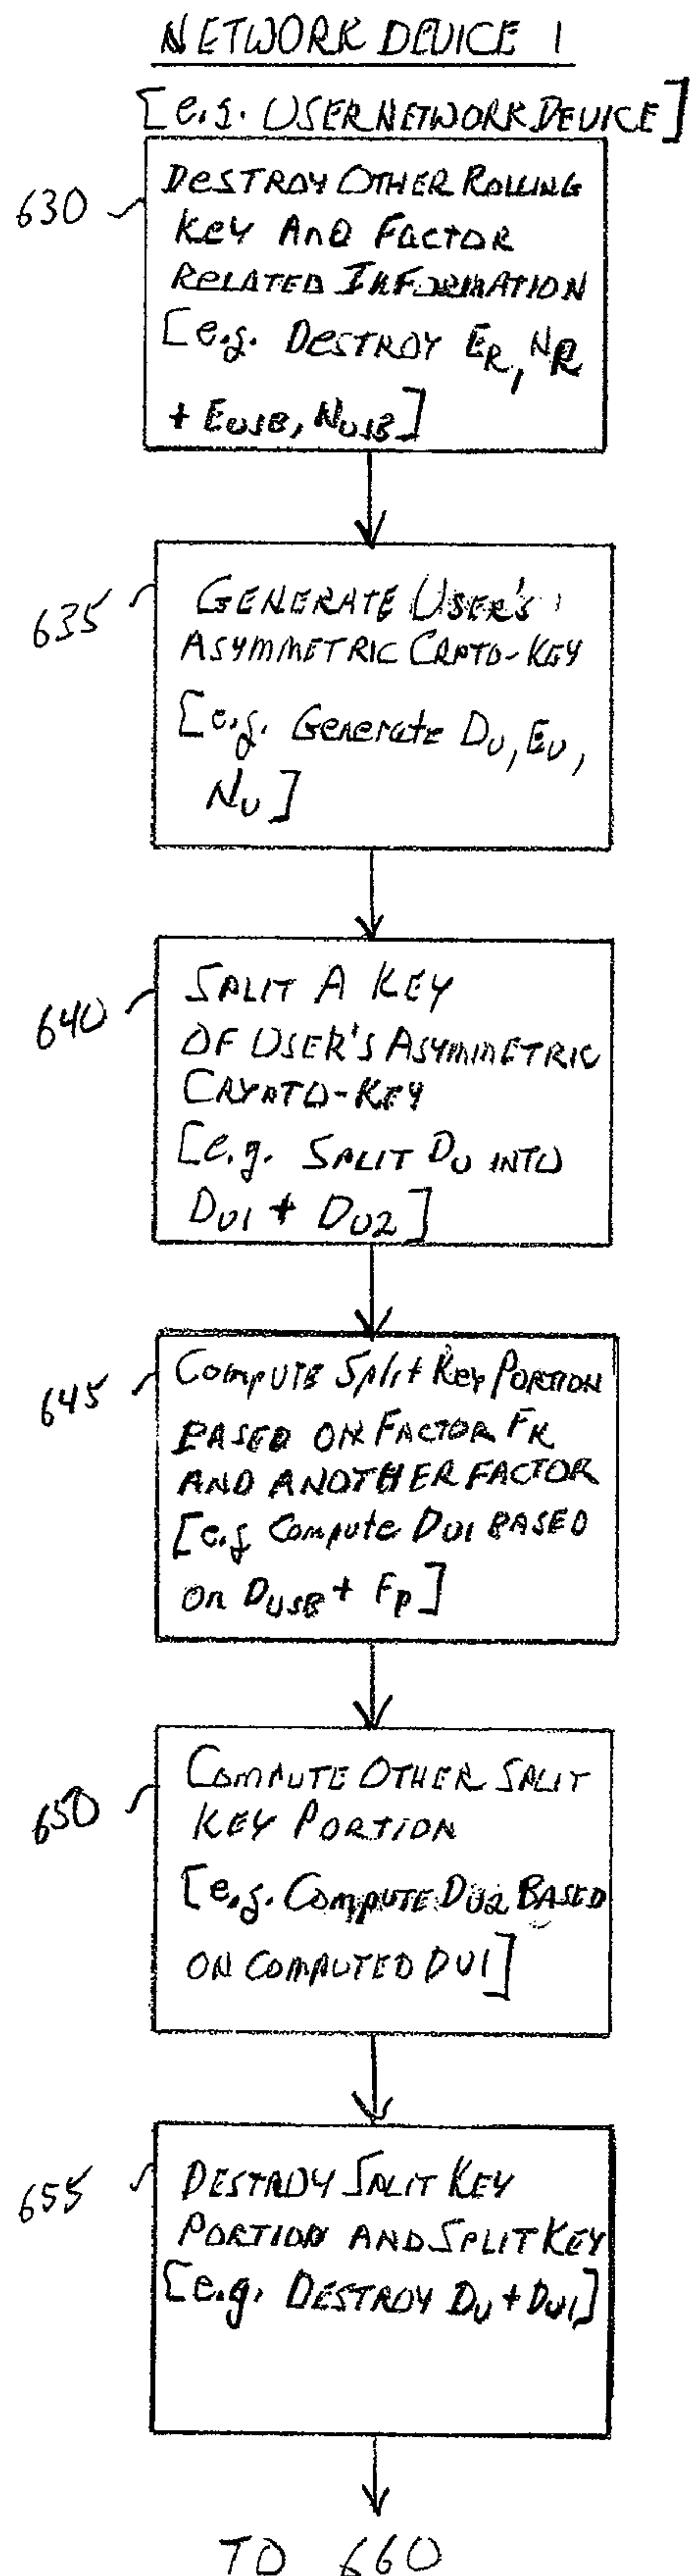 NETWORK DEVICE 1
[e.g. USER NETWORK DEVICE]
630
DESTROY OTHER ROLLING
KEY AND FACTOR
RELATED INFORMATION
[e.g. DESTROY ER, NR
+ EUSB, NUSB]
635
GENERATE USER'S
ASYMMETRIC CRPTO-KEY
[e.g. Generate DU, EU,
NU]
640
SPLIT A KEY
OF USER'S ASYMMETRIC
CRYPTO-KEY
[e.g. SPLIT DU INTO
DU1 + DU2]
645
COMPUTE Split Key PORTION
BASED ON FACTOR FK
AND ANOTHER FACTOR
[e.g Compute DU1 BASED
on DUSB + FP]
650
COMPUTE OTHER SPLIT
KEY PORTION
[e.g. COMPUTE DU2 BASED
ON COMPUTED DU1]
655
DESTROY SPLIT KEY
PORTION AND SPLIT KEY
[e.g. DESTROY DU + DU1]
TO 660